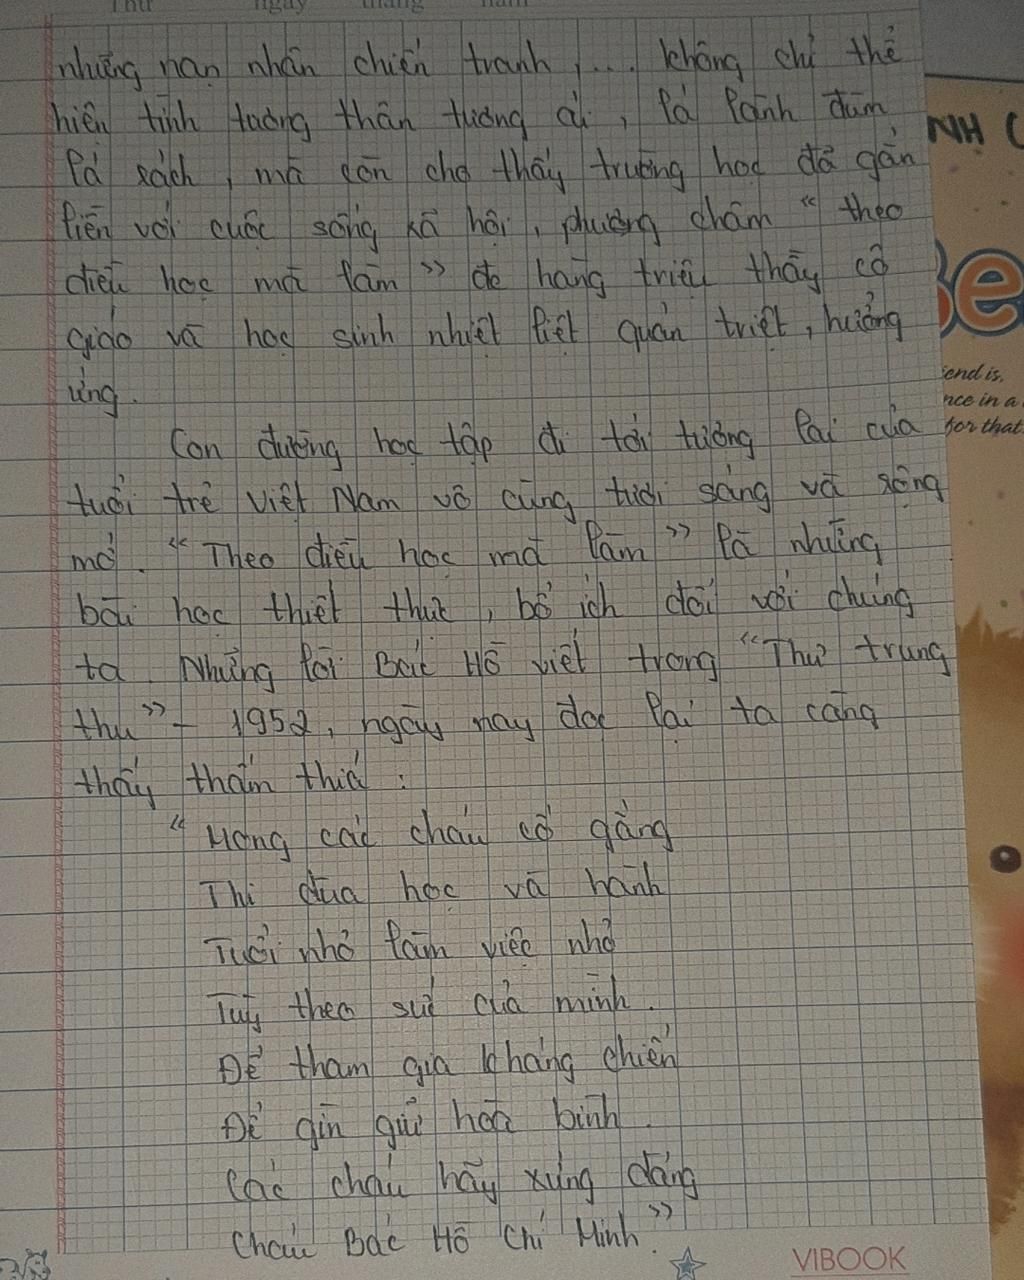 Thứ ngày tháng năm
những nạn nhân chiến tranh,... không chỉ thể
hiện tình tương thân tương ái, lá lành đùm
lá rách, mà còn cho thấy trường học đã gắn
liền với cuộc sống xã hội, phương châm " theo
điều học mà làm " đc hàng triệu thầy cô
giáo và học sinh nhiệt liệt quán triệt, hưởng
ứng.
Con đường học tập đi tới tương lai của
tuổi trẻ Việt Nam vô cùng tươi sáng và rộng
mở. " Theo điều học mà làm " là những
bài học thiết thực, bổ ích đối với chúng
ta. Những lời Bác Hồ viết trong "Thư trung
thu" - 1952, ngày nay đọc lại ta càng
thấy thấm thía :
" Mong các cháu cố gắng
Thi đua học và hành
Tuổi nhỏ làm việc nhỏ
Tùy theo sức của mình.
Để tham gia kháng chiến
Để gìn giữ hoà bình.
Các cháu hãy xứng đáng
Cháu Bác Hồ Chí Minh."
VIBOOK
NH
Be
iend is,
nce in a
for that